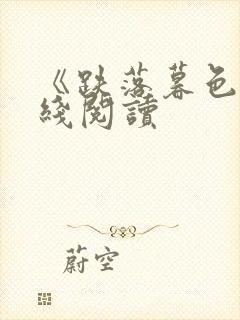 《跌落暮色
綫閱讀
蔚空